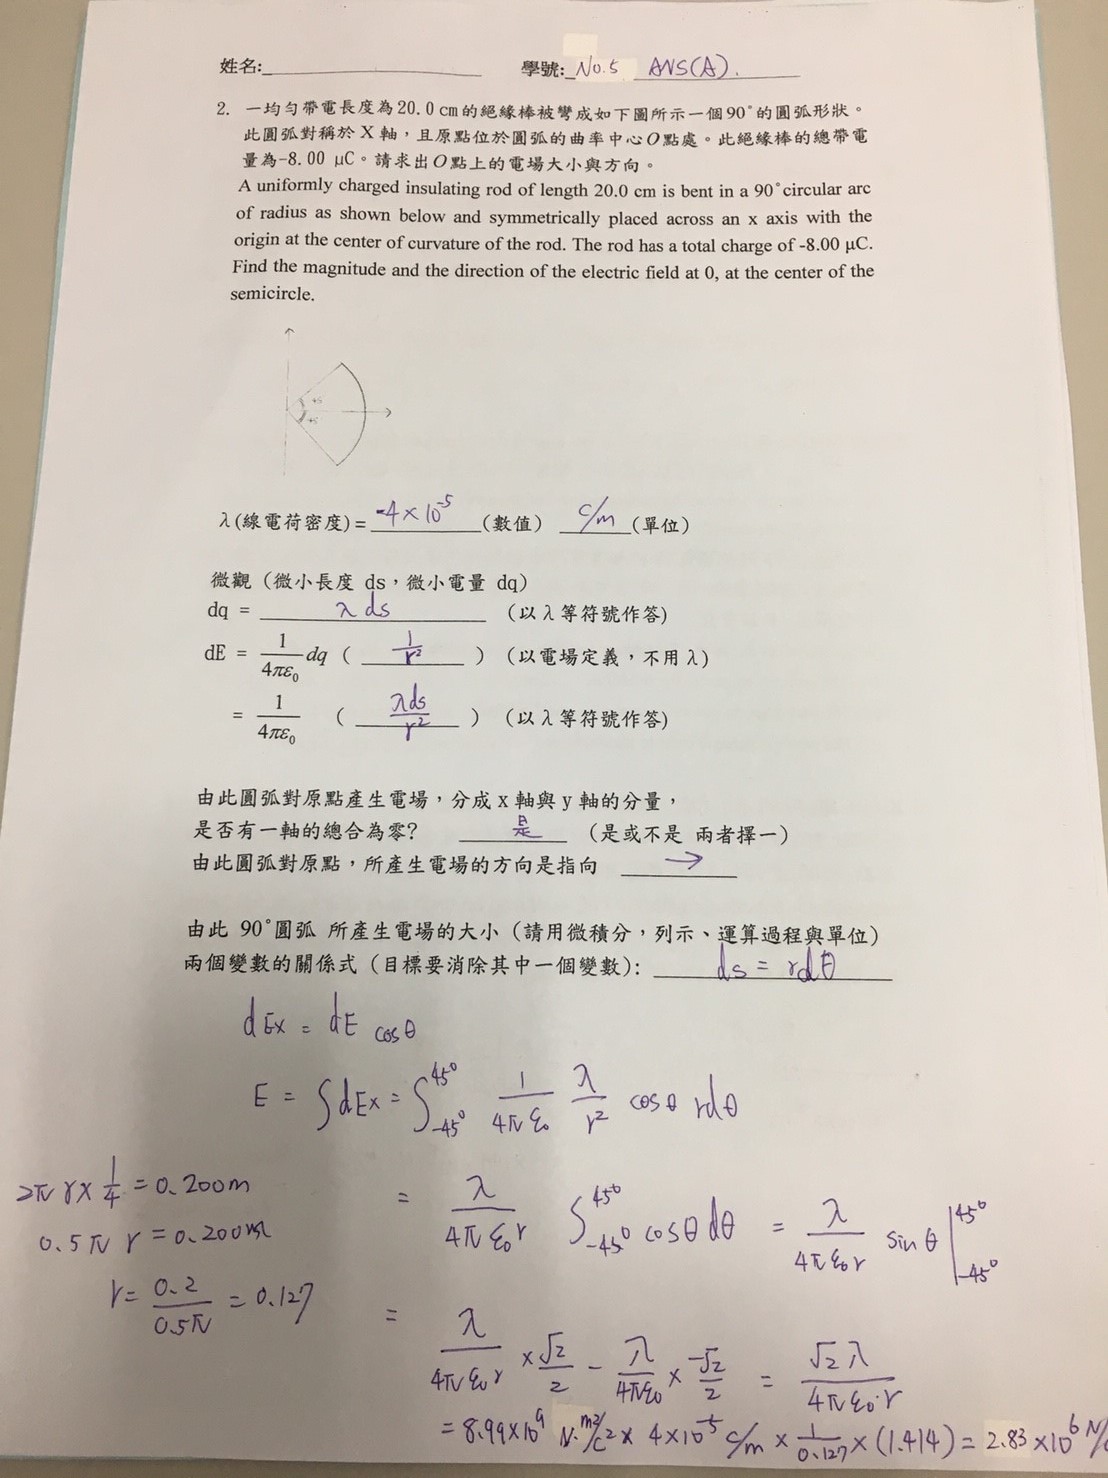 姓名:____________ 學號: No.5 ANS(A).
2. 一均勻帶電長度為20.0 cm的絕緣棒被彎成如下圖所示一個90°的圓弧形狀。
此圓弧對稱於 X 軸,且原點位於圓弧的曲率中心O點處。此絕緣棒的總帶電
量為-8.00 μC。請求出O點上的電場大小與方向。
A uniformly charged insulating rod of length 20.0 cm is bent in a 90°circular arc
of radius as shown below and symmetrically placed across an x axis with the
origin at the center of curvature of the rod. The rod has a total charge of -8.00 μC.
Find the magnitude and the direction of the electric field at 0, at the center of the
semicircle.
45
45
λ(線電荷密度)= -4×10⁻⁵ (數值) C/m (單位)
微觀(微小長度 ds,微小電量 dq)
dq = λ ds (以λ等符號作答)
dE = 1/4πε₀ dq ( 1/r² ) (以電場定義,不用λ)
= 1/4πε₀ ( λds/r² ) (以λ等符號作答)
由此圓弧對原點產生電場,分成 x 軸與 y 軸的分量,
是否有一軸的總合為零? 是 (是或不是 兩者擇一)
由此圓弧對原點,所產生電場的方向是指向 →
由此 90°圓弧 所產生電場的大小(請用微積分,列示、運算過程與單位)
兩個變數的關係式(目標要消除其中一個變數): ds = rdθ
dEx = dE cosθ
E = ∫dEx = ∫₋₄₅°⁴⁵° 1/4πε₀ λ/r² cosθ rdθ
2πr×1/4 = 0.200m
= λ/4πε₀r ∫₋₄₅°⁴⁵° cosθdθ = λ/4πε₀r sinθ|₋₄₅°⁴⁵°
0.5πr = 0.200m
r = 0.2/0.5π = 0.127
= λ/4πε₀r × √2/2 − λ/4πε₀ × -√2/2 = √2λ/4πε₀·r
= 8.99×10⁹ N·m²/C² × 4×10⁻⁵ C/m × 1/0.127 × (1.414) = 2.83×10⁶ N/